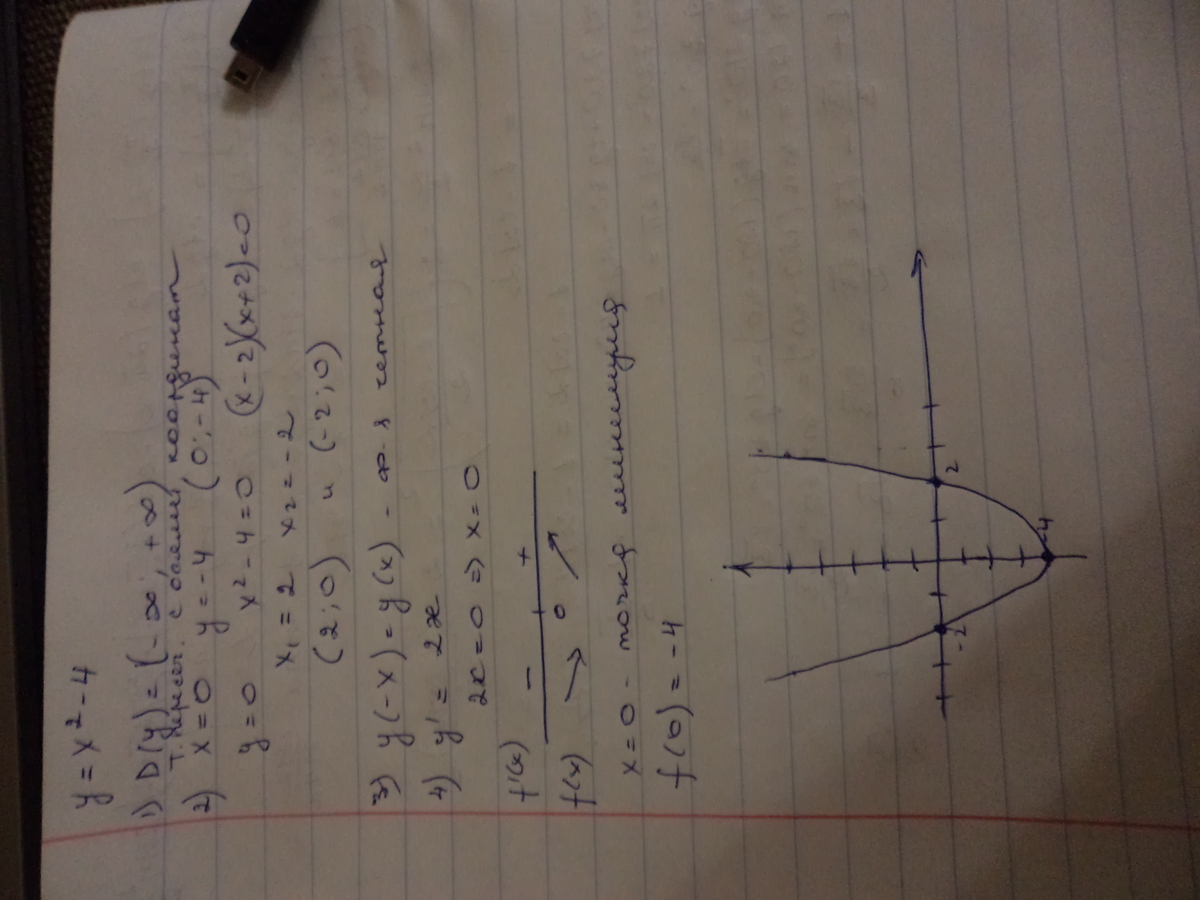 y = x² - 4
1) D(y) = (-∞; +∞)
т. пересеч. с осями координат
2) x = 0 y = -4 (0; -4)
y = 0 x² - 4 = 0 (x - 2)(x + 2) = 0
x₁ = 2 x₂ = -2
(2; 0) и (-2; 0)
3) y(-x) = y(x) - ф-я четная
4) y' = 2x
2x = 0 => x = 0
f'(x) - +
f(x) ↘ 0 ↗
x = 0 - точка минимума
f(0) = -4
-2 2
-4